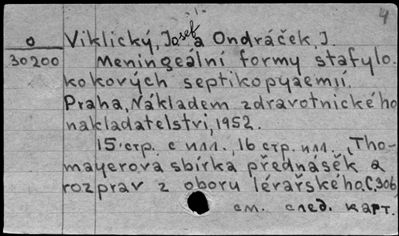 4
o Viklický, Josef a Ondráček, J.
30200 Meningeální formy stafylo-
kokových septikopyaemií.
Praha, Nákladem zdravotnického
nakladatelstvi, 1952.
15 стр. с илл., 16 стр. илл., Tho-
mayerova sbírka přednásěk a
rozprav z oboru lérařského. Č.306
см. след. карт.